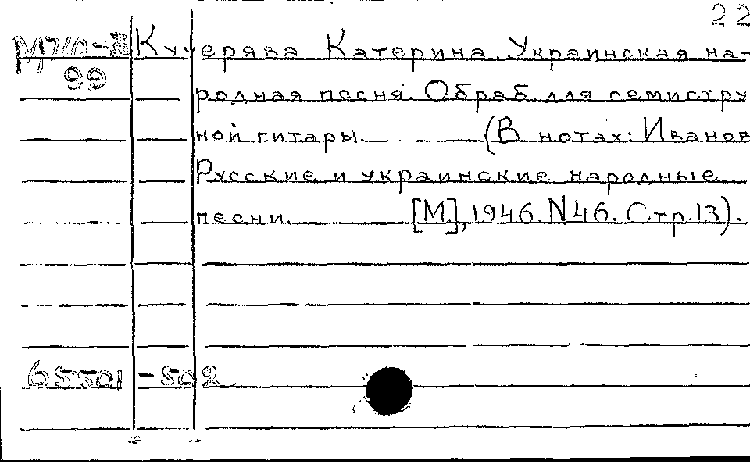 22
М710-2 Кучерява Катерина. Украинская на-
99
родная песня. Обраб. для семистру
ной гитары. (В нотах: Иванов
Русские и украинские народные
песни. [М.], 1946. N46. Стр. 13).
65501-502